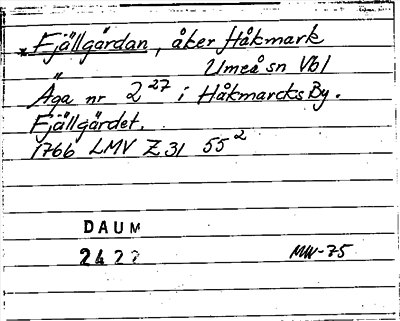 * Fjällgärdan, åker Håkmark
Umeå sn Vbl
Äga nr 2 27 i Håkmarcks By.
Fjällgärdet.
1766 LMV Z 31 55 2
DAUM
2422 MW-75